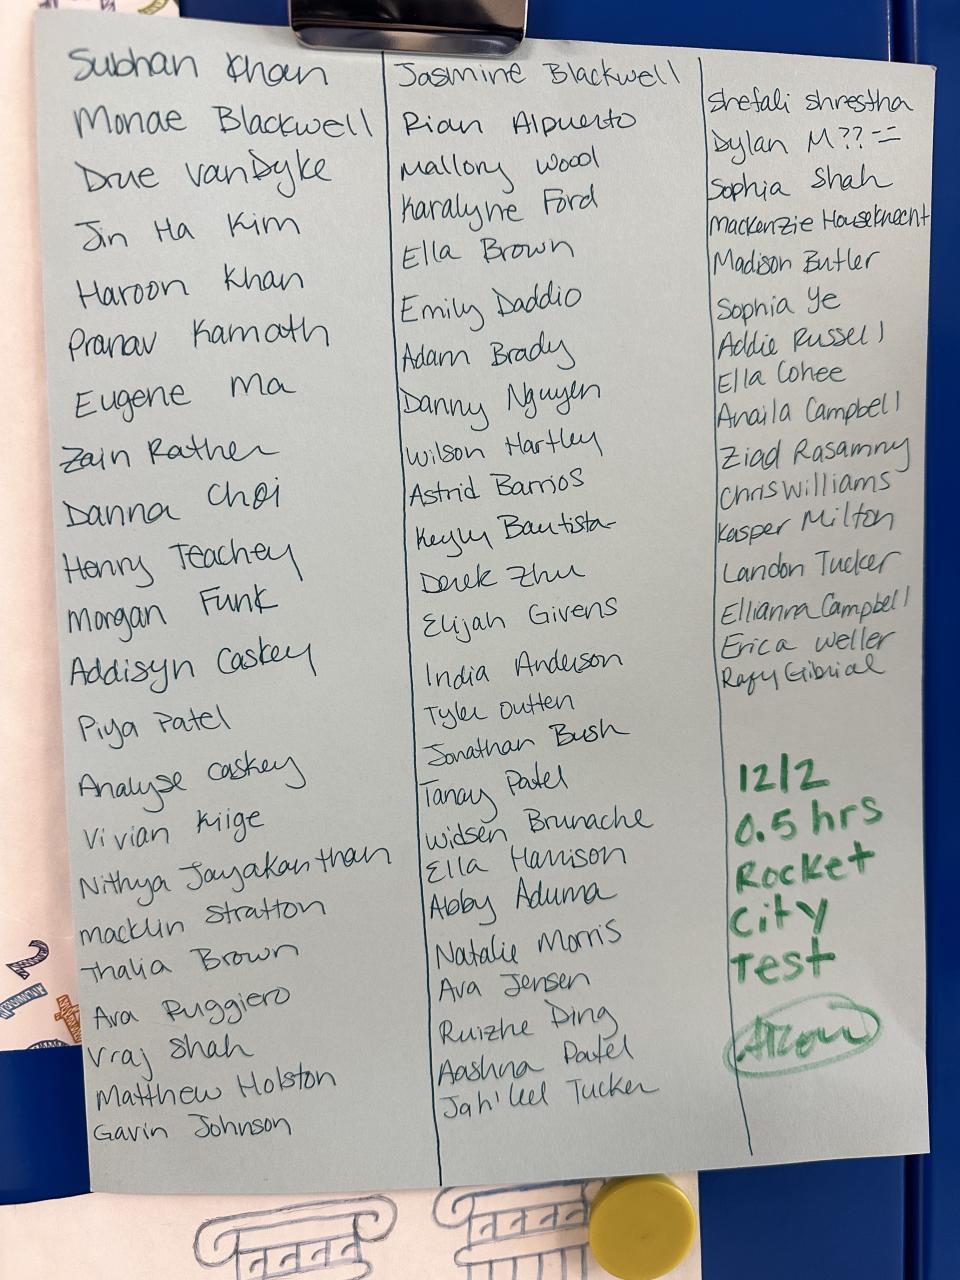 Subhan Khan
Monae Blackwell
Drue vanDyke
Jin Ha Kim
Haroon Khan
Pranav Kamath
Eugene Ma
Zain Rather
Danna Choi
Henry Teachey
Morgan Funk
Addisyn Caskey
Piya Patel
Analyse Caskey
Vivian Kiige
Nithya Jayakanthan
Macklin Stratton
Thalia Brown
Ava Ruggiero
Vraj Shah
Matthew Holston
Gavin Johnson
Jasmine Blackwell
Rian Alpuerto
Mallory Wood
Karalyne Ford
Ella Brown
Emily Daddio
Adam Brady
Danny Nguyen
Wilson Hartley
Astrid Barrios
Keyly Bautista
Derek Zhu
Elijah Givens
India Anderson
Tyler Outten
Jonathan Bush
Tanay Patel
Widsen Brunache
Ella Harrison
Abby Aduma
Natalie Morris
Ava Jensen
Ruizhe Ding
Aashna Patel
Tucker
Shefali Shrestha
Dylan M??==
Sophia Shah
Mackenzie Houseknecht
Madison Butler
Sophia Ye
Addie Russell
Ella Cohee
Anaila Campbell
Ziad Rasamny
Chris Williams
Kasper Milton
Landon Tucker
Ellianna Campbell
Erica Weller
Rafy Gibrial
12/2
0.5 hrs
Rocket
City
Test